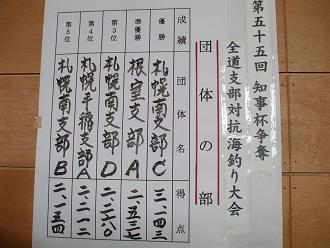 第五十五回 知事杯争奪
全道支部対抗海釣り大会
団体の部
成績 団体名 得点
優勝 札幌南支部C 三、一四三
準優勝 根室支部A 二、五三七
第3位 札幌南支部D 二、二六〇
第4位 札幌手稲支部A 二、二一二
第5位 札幌南支部B 二、一五四